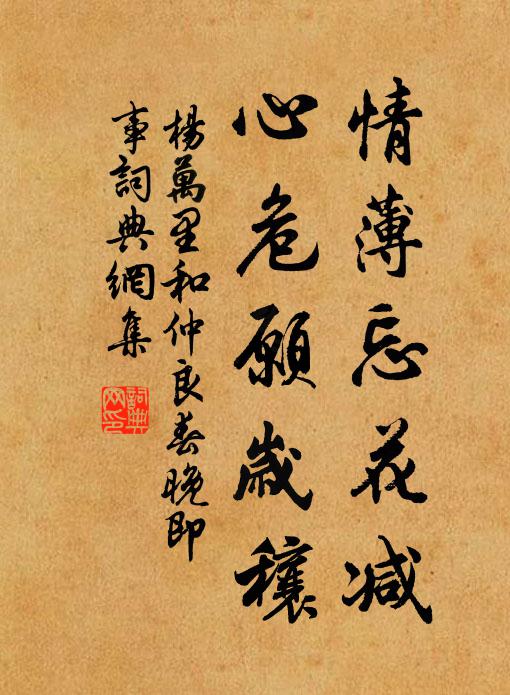 情薄忘花減
心危願歲穰
楊萬里和仲良春晚即
事詞典網集
詞典
网印